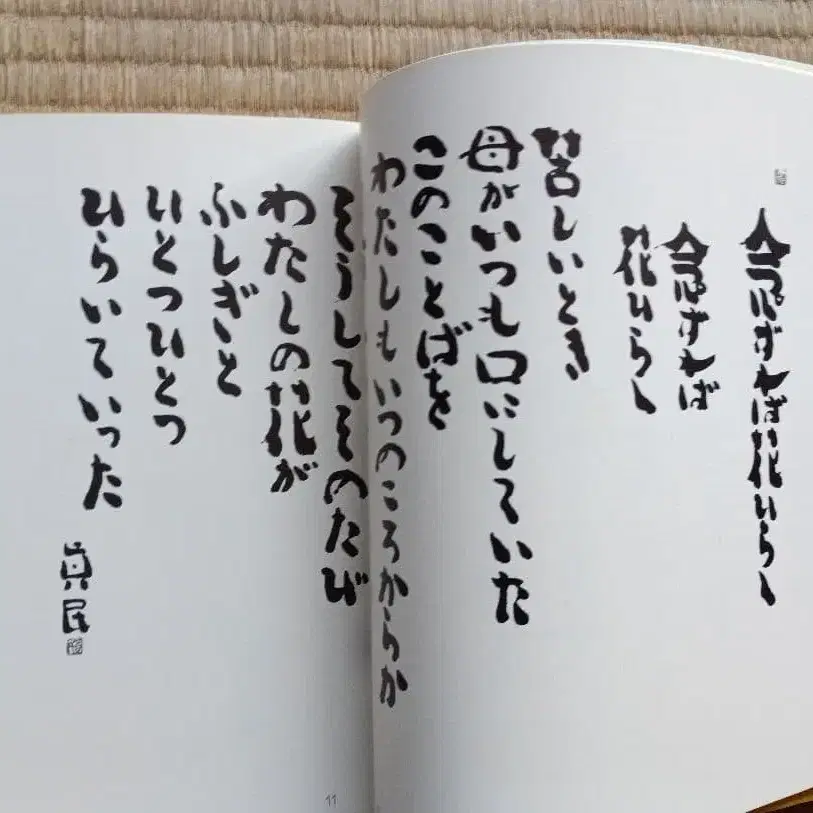 念ずれば花ひらく
念ずれば
花ひらく
苦しいとき
母がいつも口にしていた
このことばを
わたしもいつのころからか
そうしてそのたび
わたしの花が
ふしぎと
ひとつひとつ
ひらいていった
真民
11